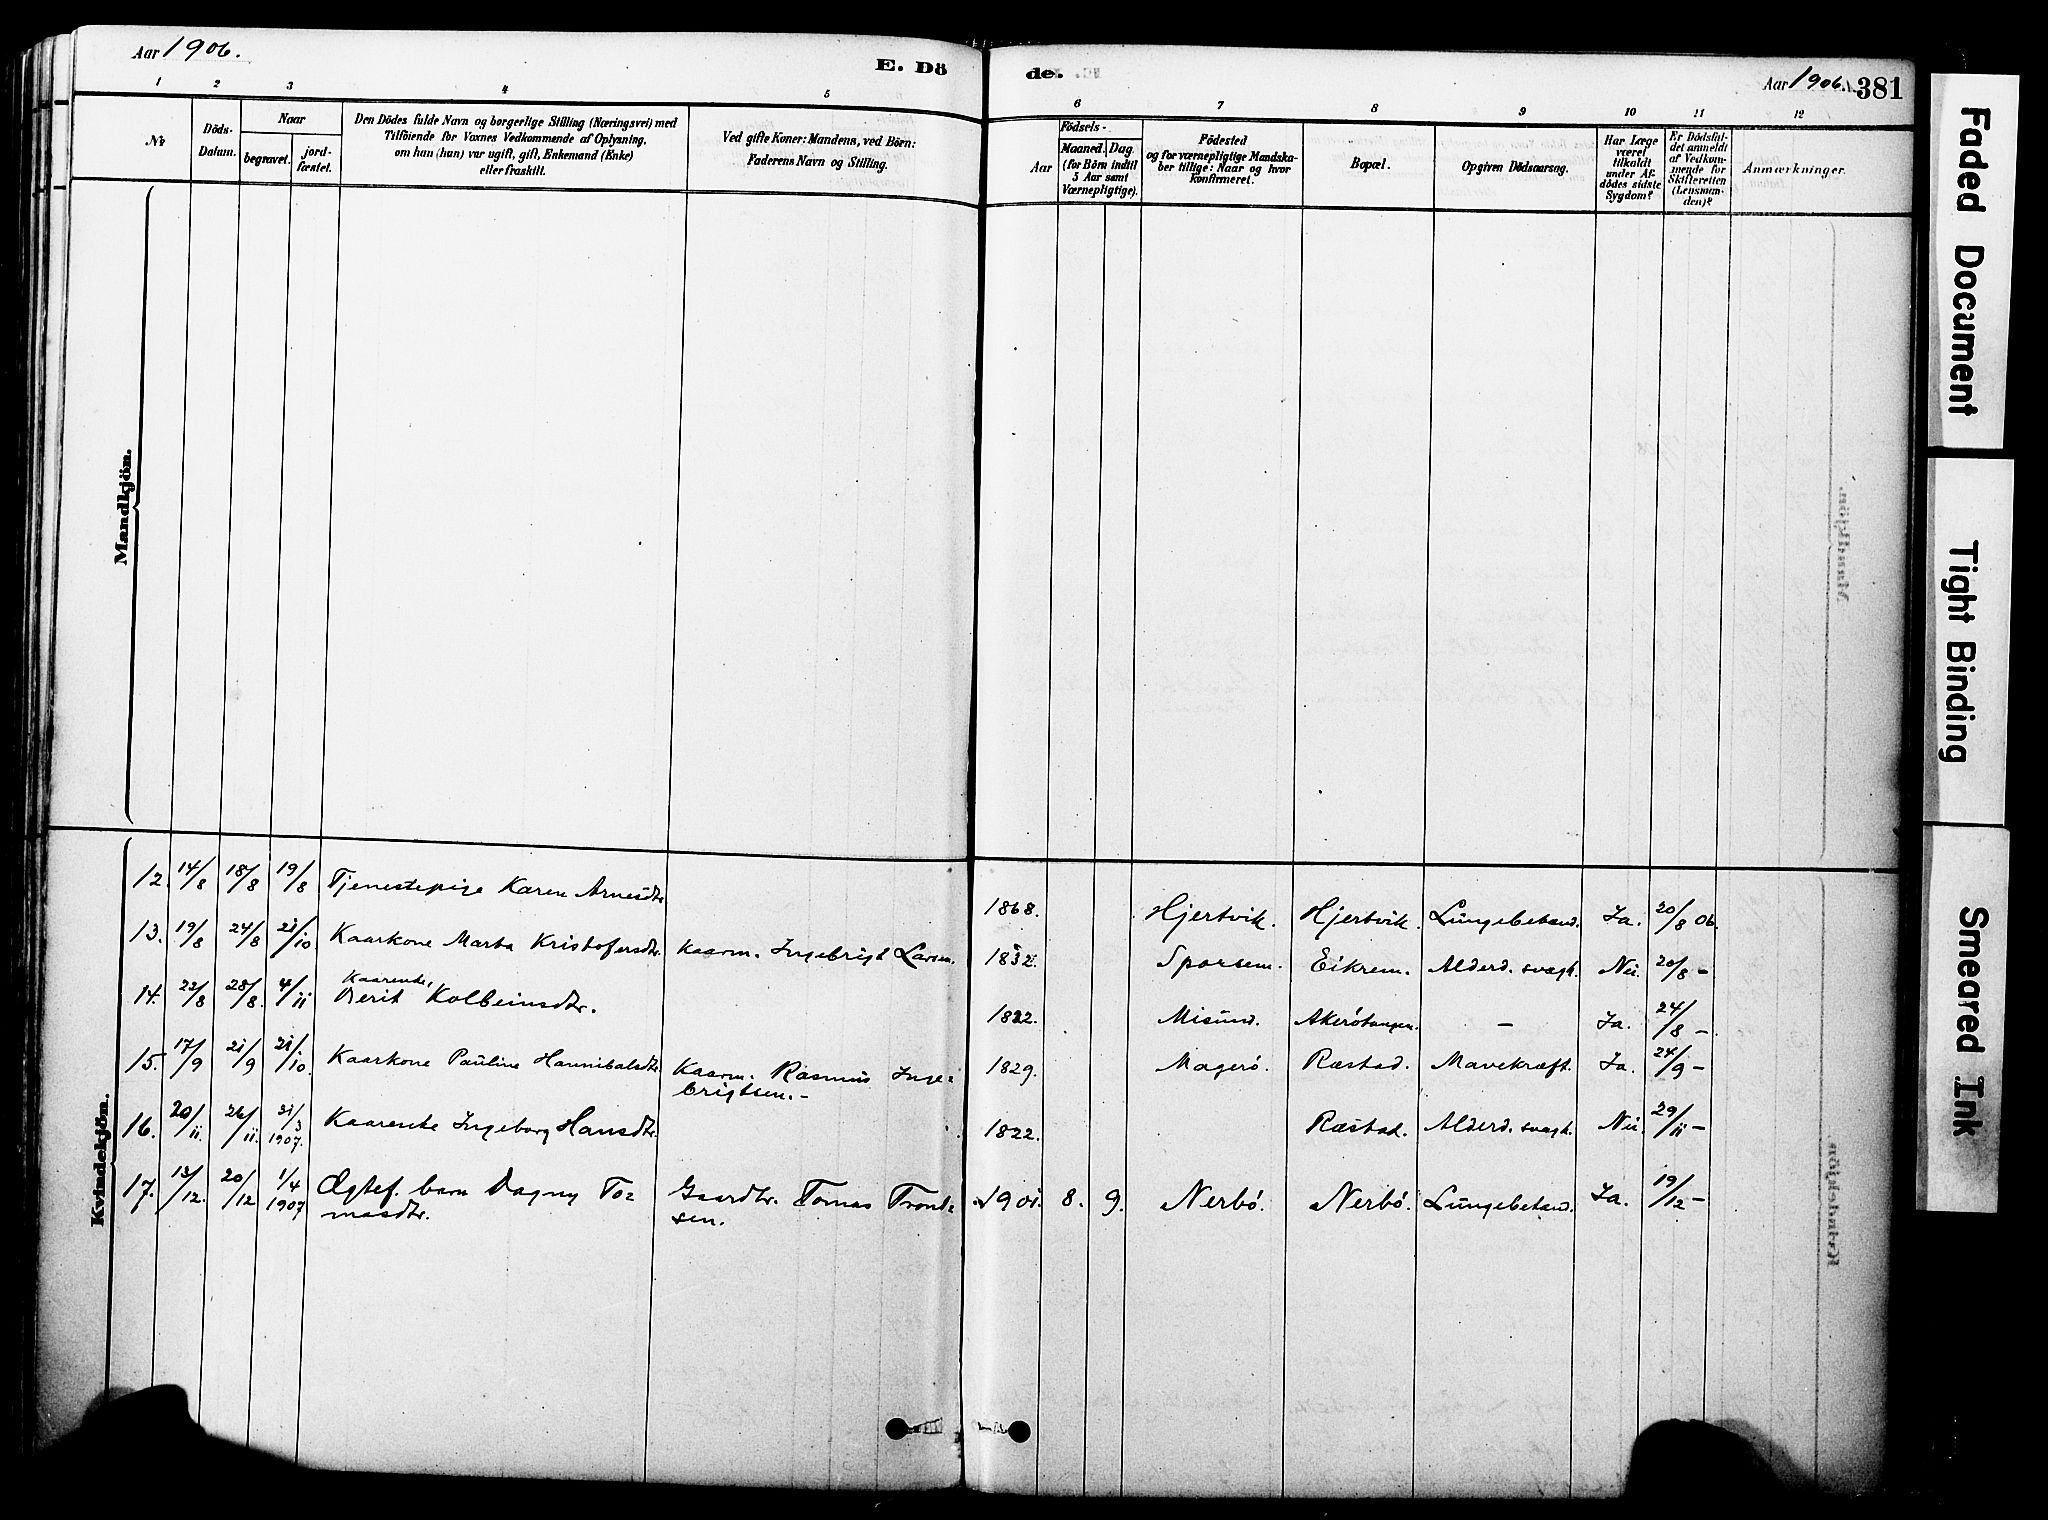 Aar 1906.
E. Dö
de.
Aar 1906.
381
1 2 3 4 5
6 7 8 9 10 11 12
Nr
Döds-
Datum.
Naar
begravet.
jord-
fæstet.
Den Dödes fulde Navn og borgerlige Stilling (Næringsvei) med
Tilföiende for Voxnes Vedkommende af Oplysning,
om han (hun) var ugift, gift, Enkemand (Enke)
eller fraskilt.
Ved gifte Koner: Mandens, ved Börn:
Faderens Navn og Stilling.
Födsels-
Aar
Maaned. Dag
(for Börn indtil
5 Aar samt
Værnepligtige).
Födested
og for værnepligtige Mandska-
ber tillige: Naar og hvor
konfirmeret.
Bopæl.
Opgiven Dödsaarsag.
Har Læge
været
tilkaldt
under Af-
dödes sidste
Sygdom?
Er Dödsfal-
det anmeldt
af Vedkom-
mende for
Skifteretten
(Lensman-
den)?
Anmærkninger.
Mandkjön.
Kvindekjön.
12. 14/8 18/8 19/8 Tjenestepige Karen Arnesdtr. 1868. Hjertvik. Hjertvik. Lungebetænd. Ja. 20/8 06.
13. 19/8 24/8 21/10 Kaarkone Marta Kristofersdtr. Kaarm. Ingebrigt Larsen. 1832. Sporsem. Eikrem. Alderd. svagh. Nei. 20/8 –
Kaarenke,
14. 22/8 28/8. 4/11 Berit Kolbeinsdtr. 1822. Misund. Akerötangen. – Ja. 24/8 –
15. 17/9 21/9 21/10. Kaarkone Pauline Hannibalsdtr. Kaarm. Rasmus Inge= 1829. Magerö. Ræstad. Mavekræft. Ja. 24/9 –
brigtsen. –
16. 20/11. 26/11. 21/3 1907. Kaarenke Ingeborg Hansdtr. 1822. Ræstad. Alderd. svagh. Nei. 29/11 –
17. 13/12. 20/12 1/4 1907 Ægtef. barn Dagny To= Gaardbr. Tomas Trond= 1901. 8. 9. Nerbö. Nerbö. Lungebetænd. Ja. 19/12 –
masdtr. sen.
Faded Document
Tight Binding
Smeared Ink